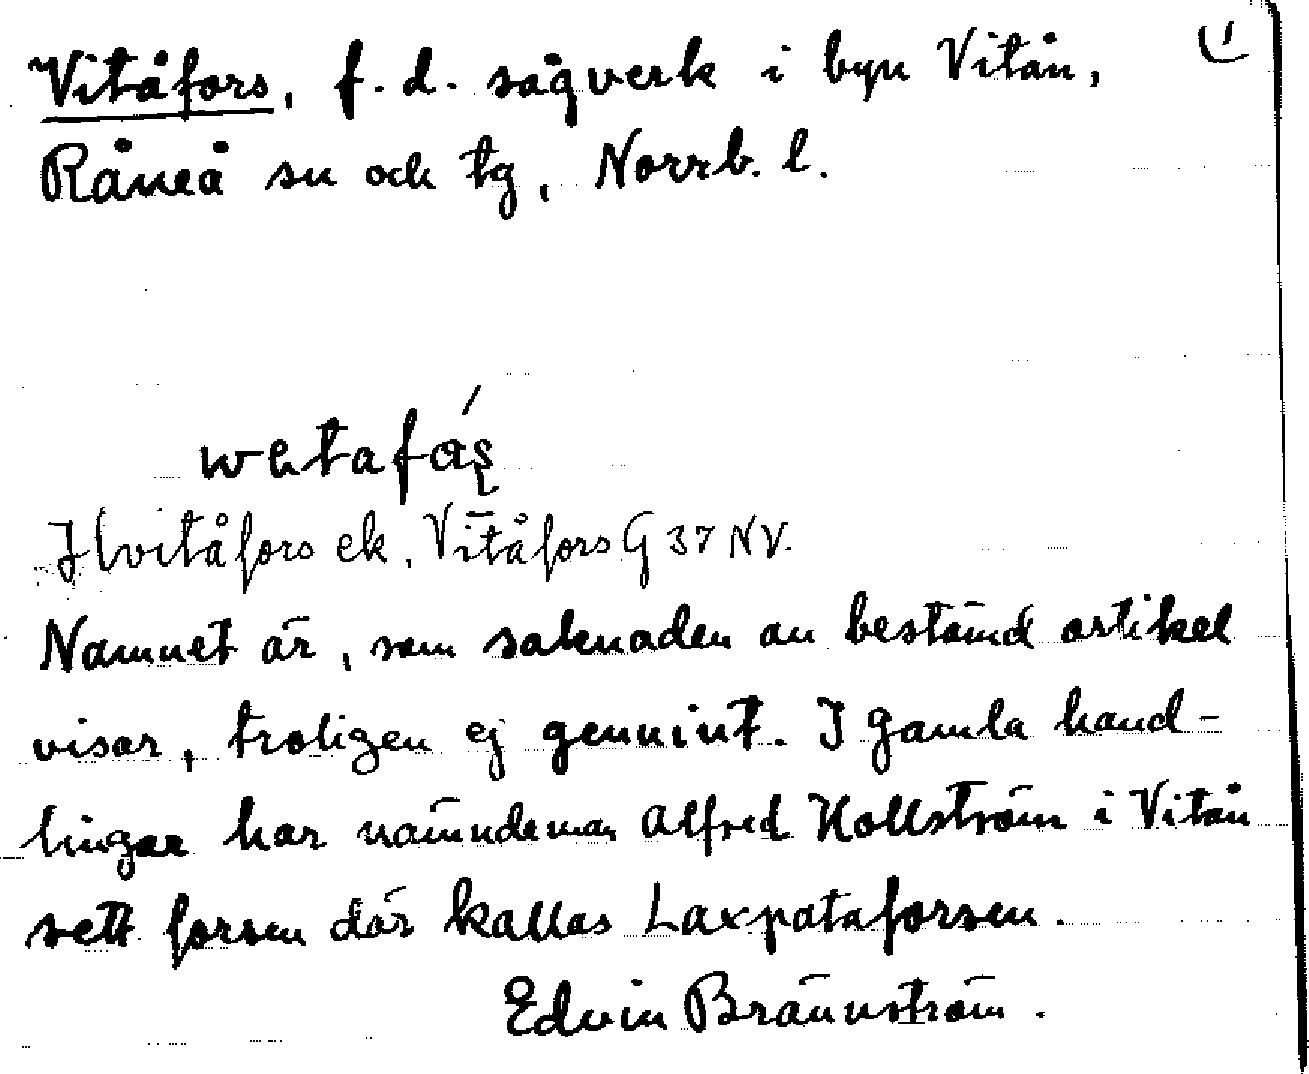 Vitåfors, f.d. sågverk i byn Vitån,
Råneå sn och tg, Norrb. l.
Hvitåfors ek, Vitåfors G 37 NV.
Namnet är, som saknaden av bestämd artikel
visar, troligen ej genuint. I gamla hand-
lingar har nämndeman Alfred Hollström i Vitån
sett forsen där kallas Laxpataforsen.
Edvin Brännström.